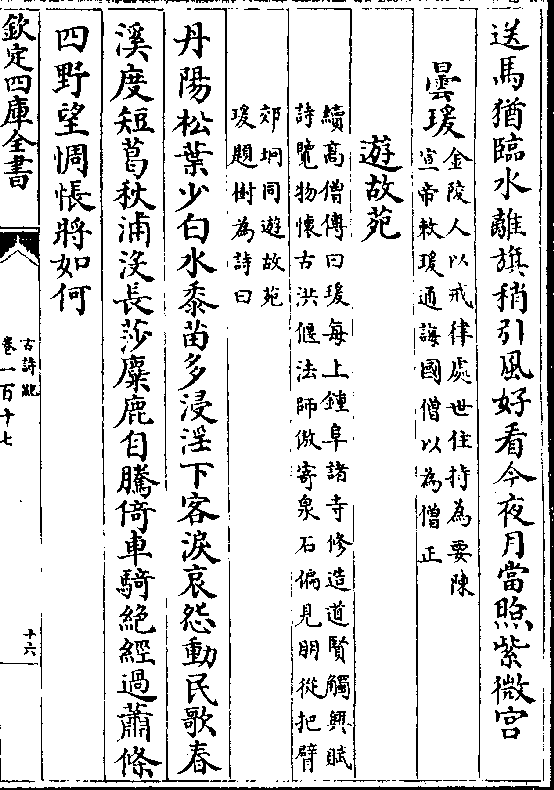 送馬猶臨水離旗稍引風好看今夜月當照紫微宮
曇瑗
金陵人以戒律處世住持為要陳
宣帝敕瑗通誨國僧以為僧正
遊故苑
續高僧傳曰瑗每上鍾阜諸寺修造道賢觸興賦
詩覽物懷古洪偃法師傲寄泉石偏見朋從把臂
郊坰同遊故苑
瑗題樹為詩曰
丹陽松葉少白水黍苗多浸淫下客淚哀怨動民歌春
溪度短葛秋浦沒長莎麋鹿自騰倚車騎絶經過蕭條
四野望惆悵將如何
欽定四庫全書
古詩紀
卷一百十七
十六